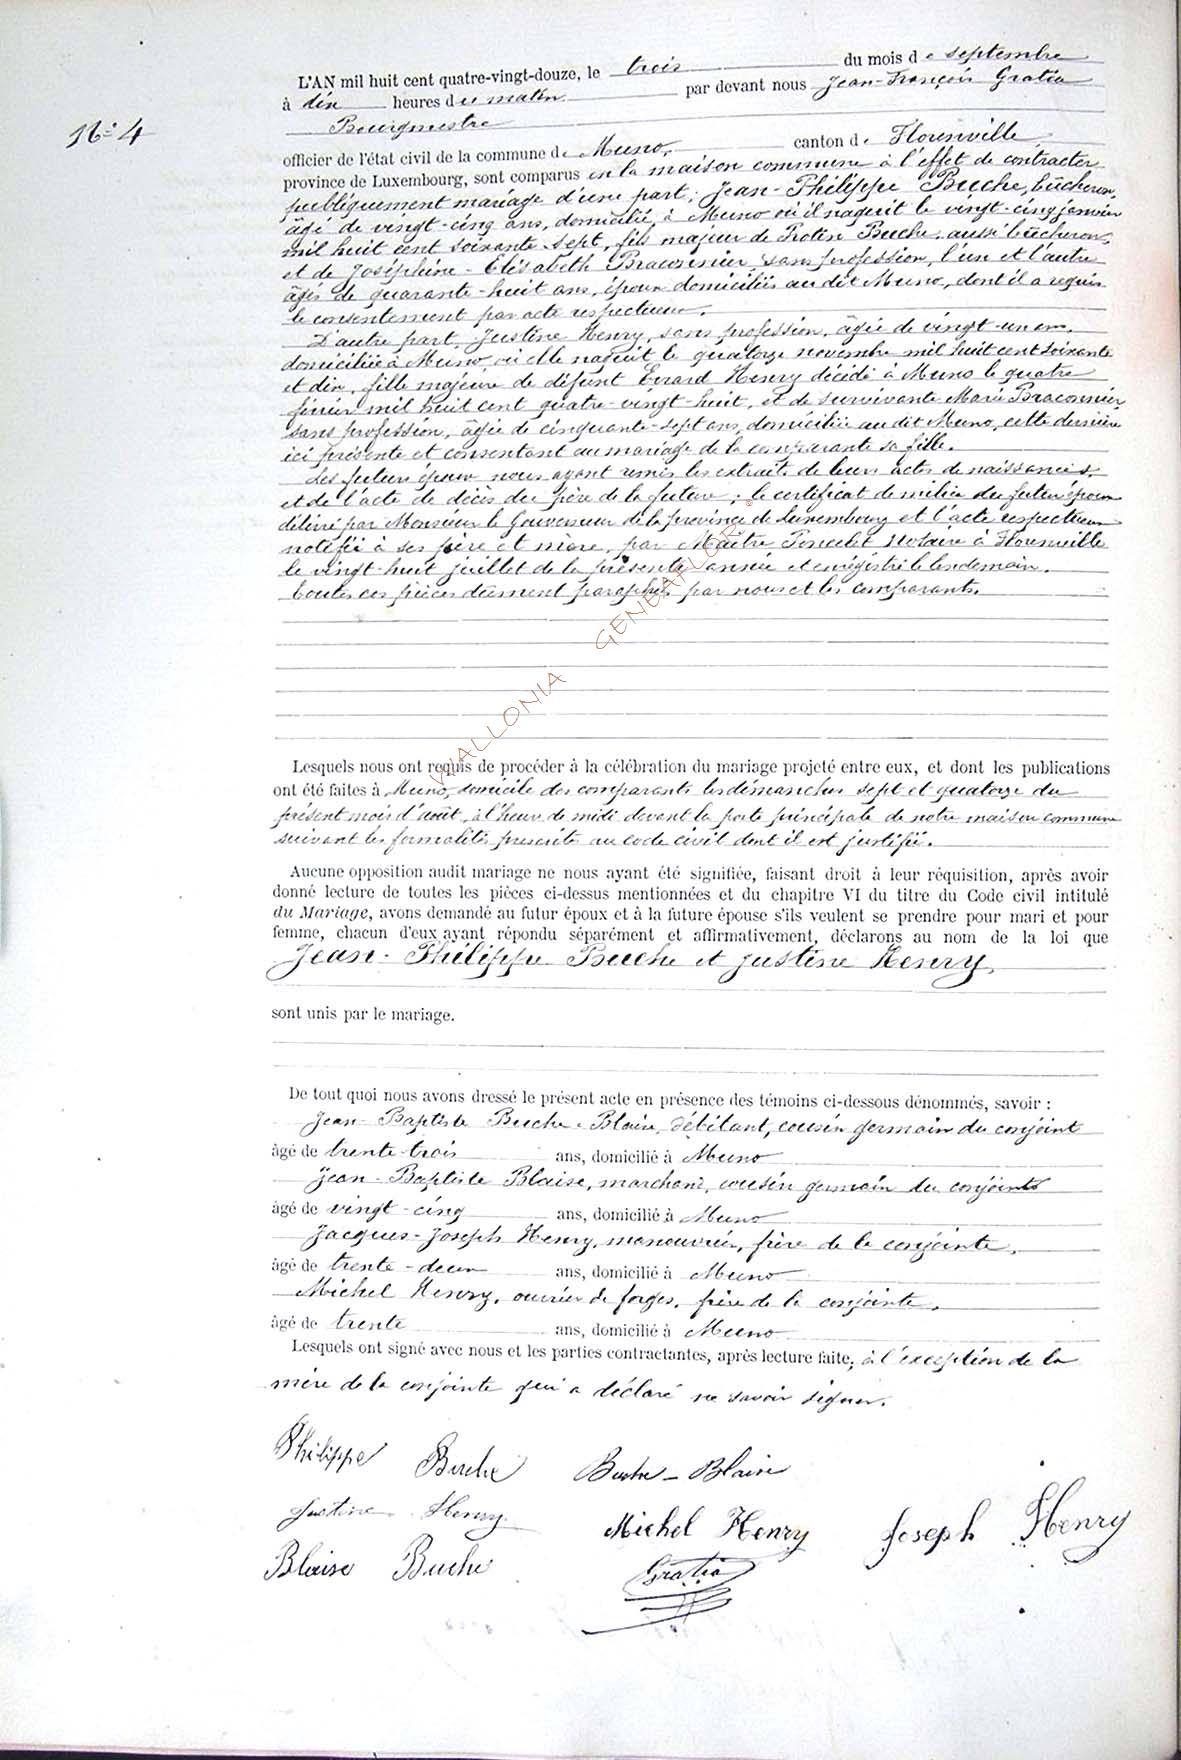 L'AN mil huit cent quatre-vingt-douze, le trois du mois de septembre
à dix heures du matin par devant nous Jean-François Gratia
Bourgmestre
N° 4
officier de l'état civil de la commune de Muno, canton de Florenville
province de Luxembourg, sont comparus en la maison commune à l'effet de contracter
publiquement mariage d'une part: Jean-Philippe Buche, bûcheron,
âgé de vingt-cinq ans, domicilié à Muno où il naquit le vingt-cinq janvier
mil huit cent soixante-sept, fils majeur de Protin Buche, aussi bûcheron,
et de Joséphine-Elisabeth Braconnier, sans profession, l'un et l'autre
âgés de quarante-huit ans, époux domiciliés au dit Muno, dont il a requis
le consentement par acte respectueux.
D'autre part, Justine Henry, sans profession, âgée de vingt-un ans,
domiciliée à Muno, où elle naquit le quatorze novembre mil huit cent soixante
et dix, fille majeure de défunt Evrard Henry décédé à Muno le quatre
février mil huit cent quatre-vingt-huit, et de survivante Marie Braconnier
sans profession, âgée de cinquante-sept ans, domiciliée au dit Muno, cette dernière
ici présente et consentant au mariage de la comparante sa fille.
Les futurs époux nous ayant remis les extraits de leurs actes de naissances
et de l'acte de décès du père de la future; le certificat de milice du futur époux
délivré par Monsieur le Gouverneur de la province de Luxembourg et l'acte respectueux
notifié à ses père et mère, par Maître Poncelet Notaire à Florenville
le vingt-huit juillet de la présente année et enrégistré le lendemain.
toutes ces pièces dûement paraphés par nous et les comparants.
WALLONIA GENEAFLOR
Lesquels nous ont requis de procéder à la célébration du mariage projeté entre eux, et dont les publications
ont été faites à Muno, domicile des comparants les dimanches sept et quatorze du
présent mois d'août, à l'heure de midi devant la porte principale de notre maison commune
suivant les formalités prescrites au code civil dont il est justifié.
Aucune opposition audit mariage ne nous ayant été signifiée, faisant droit à leur réquisition, après avoir
donné lecture de toutes les pièces ci-dessus mentionnées et du chapitre VI du titre du Code civil intitulé
du Mariage, avons demandé au futur époux et à la future épouse s'ils veulent se prendre pour mari et pour
femme, chacun d'eux ayant répondu séparément et affirmativement, déclarons au nom de la loi que
Jean-Philippe Buche et Justine Henry,
sont unis par le mariage.
De tout quoi nous avons dressé le présent acte en présence des témoins ci-dessous dénommés, savoir :
Jean-Baptiste Buche-Blaise, débitant, cousin germain du conjoint
âgé de trente-trois ans, domicilié à Muno
Jean-Baptiste Blaise, marchand, cousin germain du conjoint
âgé de vingt-cinq ans, domicilié à Muno
Jacques-Joseph Henry, manouvrier, frère de la conjointe,
âgé de trente-deux ans, domicilié à Muno
Michel Henry, ouvrier de forges, frère de la conjointe,
âgé de trente ans, domicilié à Muno
Lesquels ont signé avec nous et les parties contractantes, après lecture faite, à l'exception de la
mère de la conjointe qui a déclaré ne savoir signer.
Philippe Buche Buche-Blaise
Justine Henry Michel Henry Joseph Henry
Blaise Buche Gratia